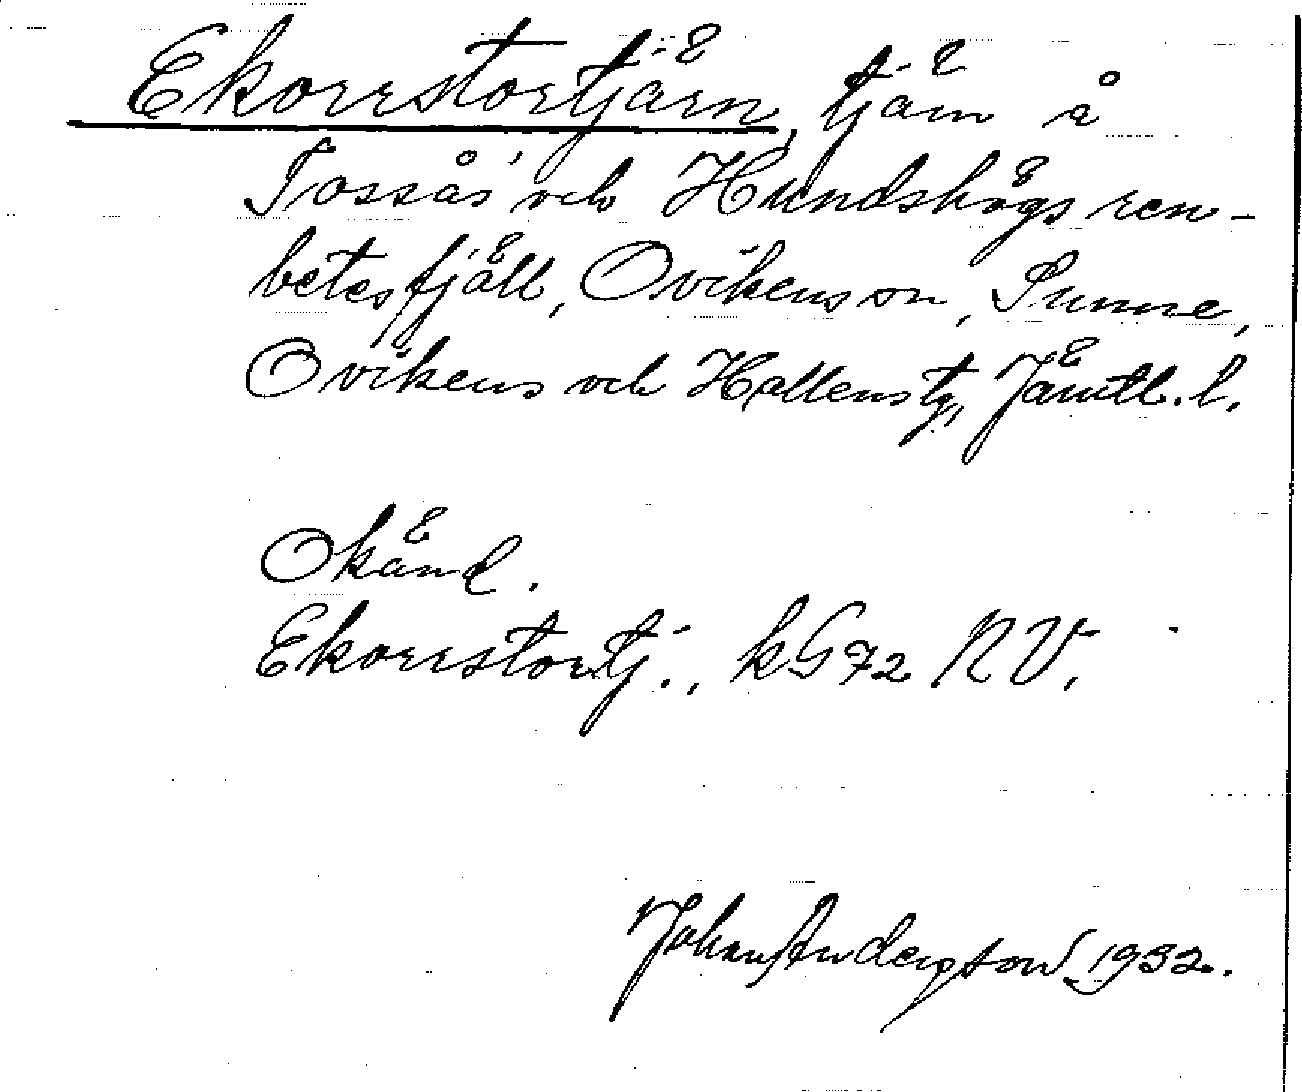 Ekorrstortjärn, tjärn å
Tossås och Hundshögs ren-
betesfjäll, Ovikens sn, Sunne,
Ovikens och Hallens tg, Jämtl. l.
Okänd.
Ekorrstortj., kG72 NV.
Johan Anderzson 1932.